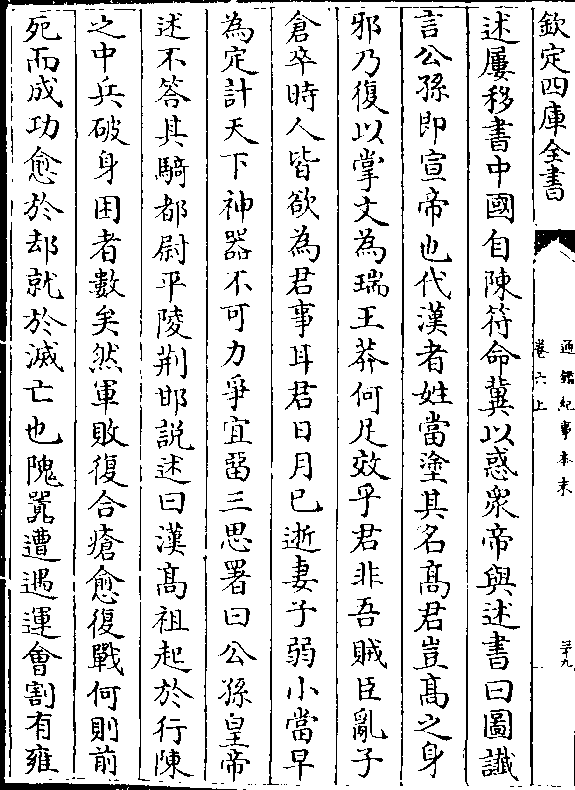 欽定四庫全書
通鑑紀事本末
卷六上
三十九
述屢移書中國自陳符命冀以惑衆帝與述書曰圖讖
言公孫即宣帝也代漢者姓當塗其名髙君豈髙之身
邪乃復以掌文為瑞王莽何足效乎君非吾賊臣亂子
倉卒時人皆欲為君事耳君日月已逝妻子弱小當早
為定計天下神器不可力爭宜留三思署曰公孫皇帝
述不答其騎都尉平陵荆邯説述曰漢髙祖起於行陳
之中兵破身困者數矣然軍敗復合瘡愈復戰何則前
死而成功愈於却就於滅亡也隗囂遭遇運會割有雍